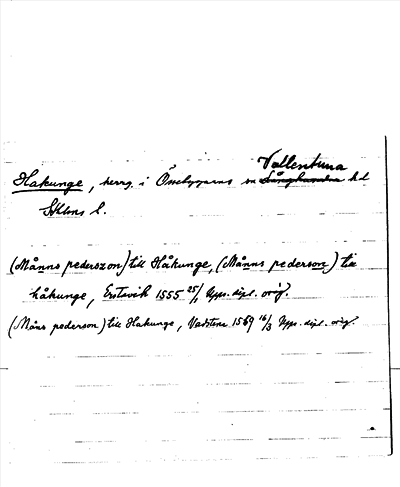 Vallentuna
Hakunge, herrg. i Össebygarns sn Långhundra hd
Sthlms l.
(Måns pederszon) till Håkunge, (Månns pederson) till
håkunge, Erstavik 1555 25/1 Upps. dipl. orig.
(Måns pederson) till Hakunge, Vadstena 1569 16/3 Upps. dipl. orig.